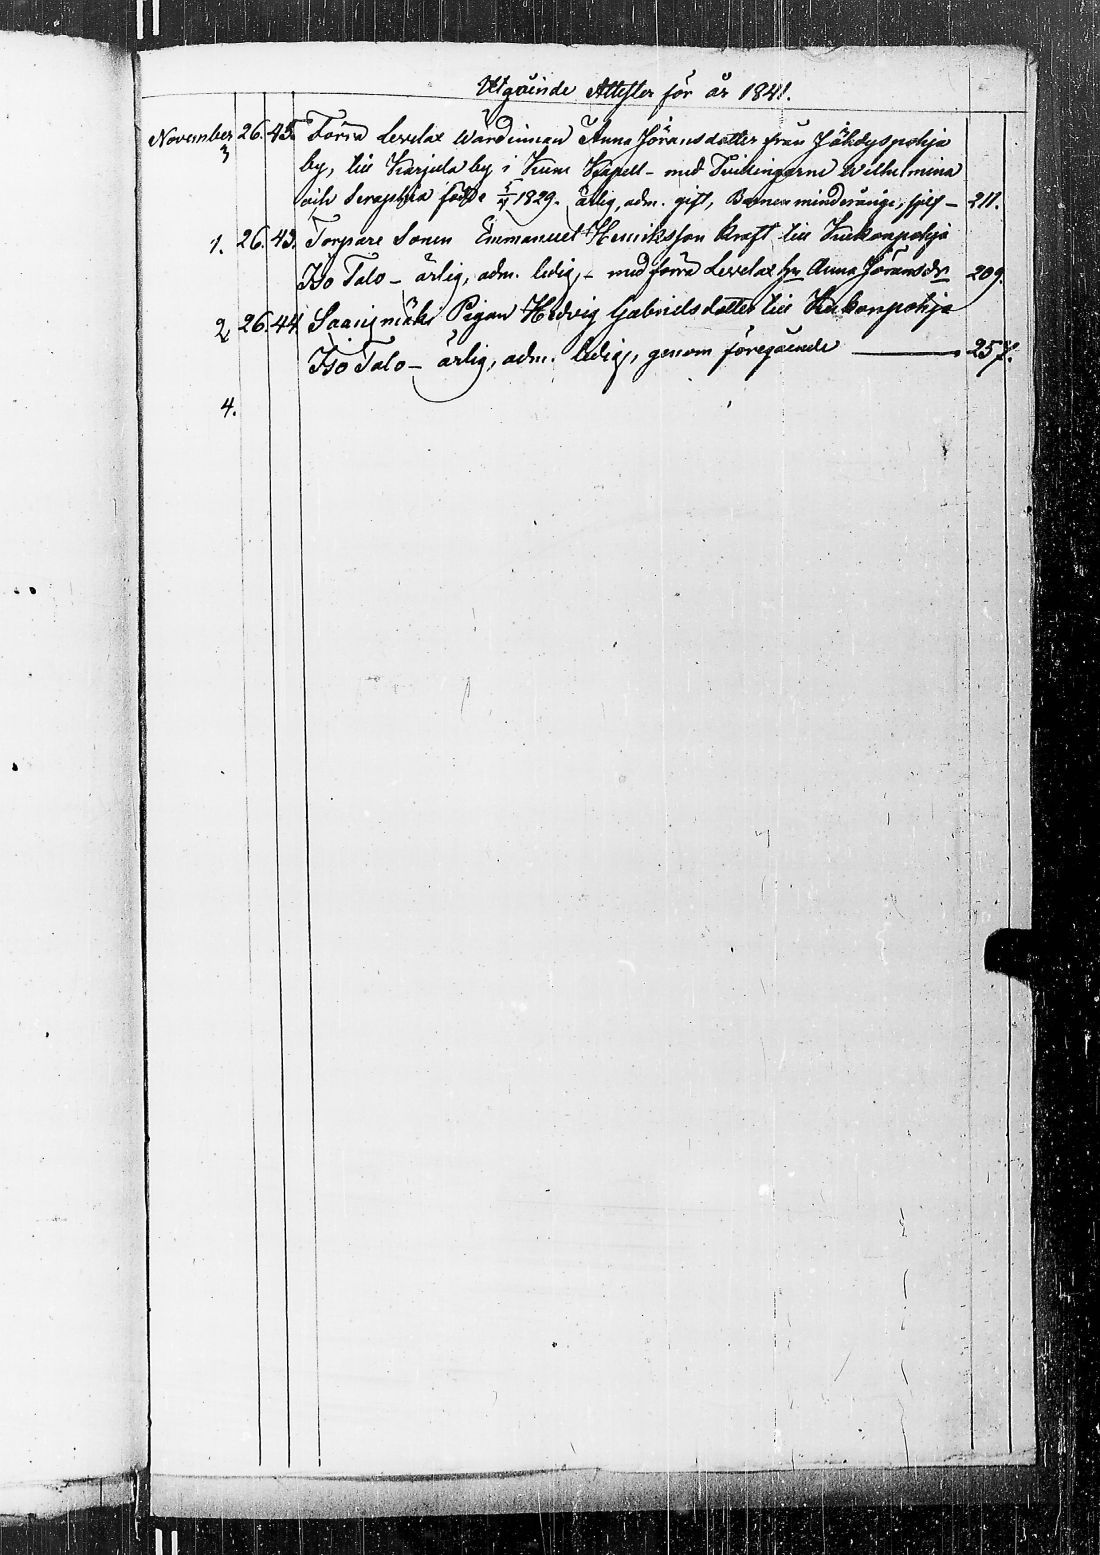 Utgående Attester för år 1841.
November 26. 43. Förra Levelax Wärdinnan Anna Jöransdotter från Jökdyspohja
3 by, till Karjela by i Kumo Kapell - med Tvillingarne Wilhelmina
och Seraphia födde 5/4 1829. ärlig, adm. gift, Barnen minderåriga, sjelf - 211.
1. 26. 43. Torpare Sonen Emmanuel Henriksson Kraft till Kukonpohja
Iso Talo - ärlig, adm. ledig, - med förra Levelax Anna Jöransdr 209.
2 26. 44. Pigan Hedvig Gabrielsdotter till Kukonpohja
Iso Talo - ärlig, adm. ledig, genom föregående 257.
4.